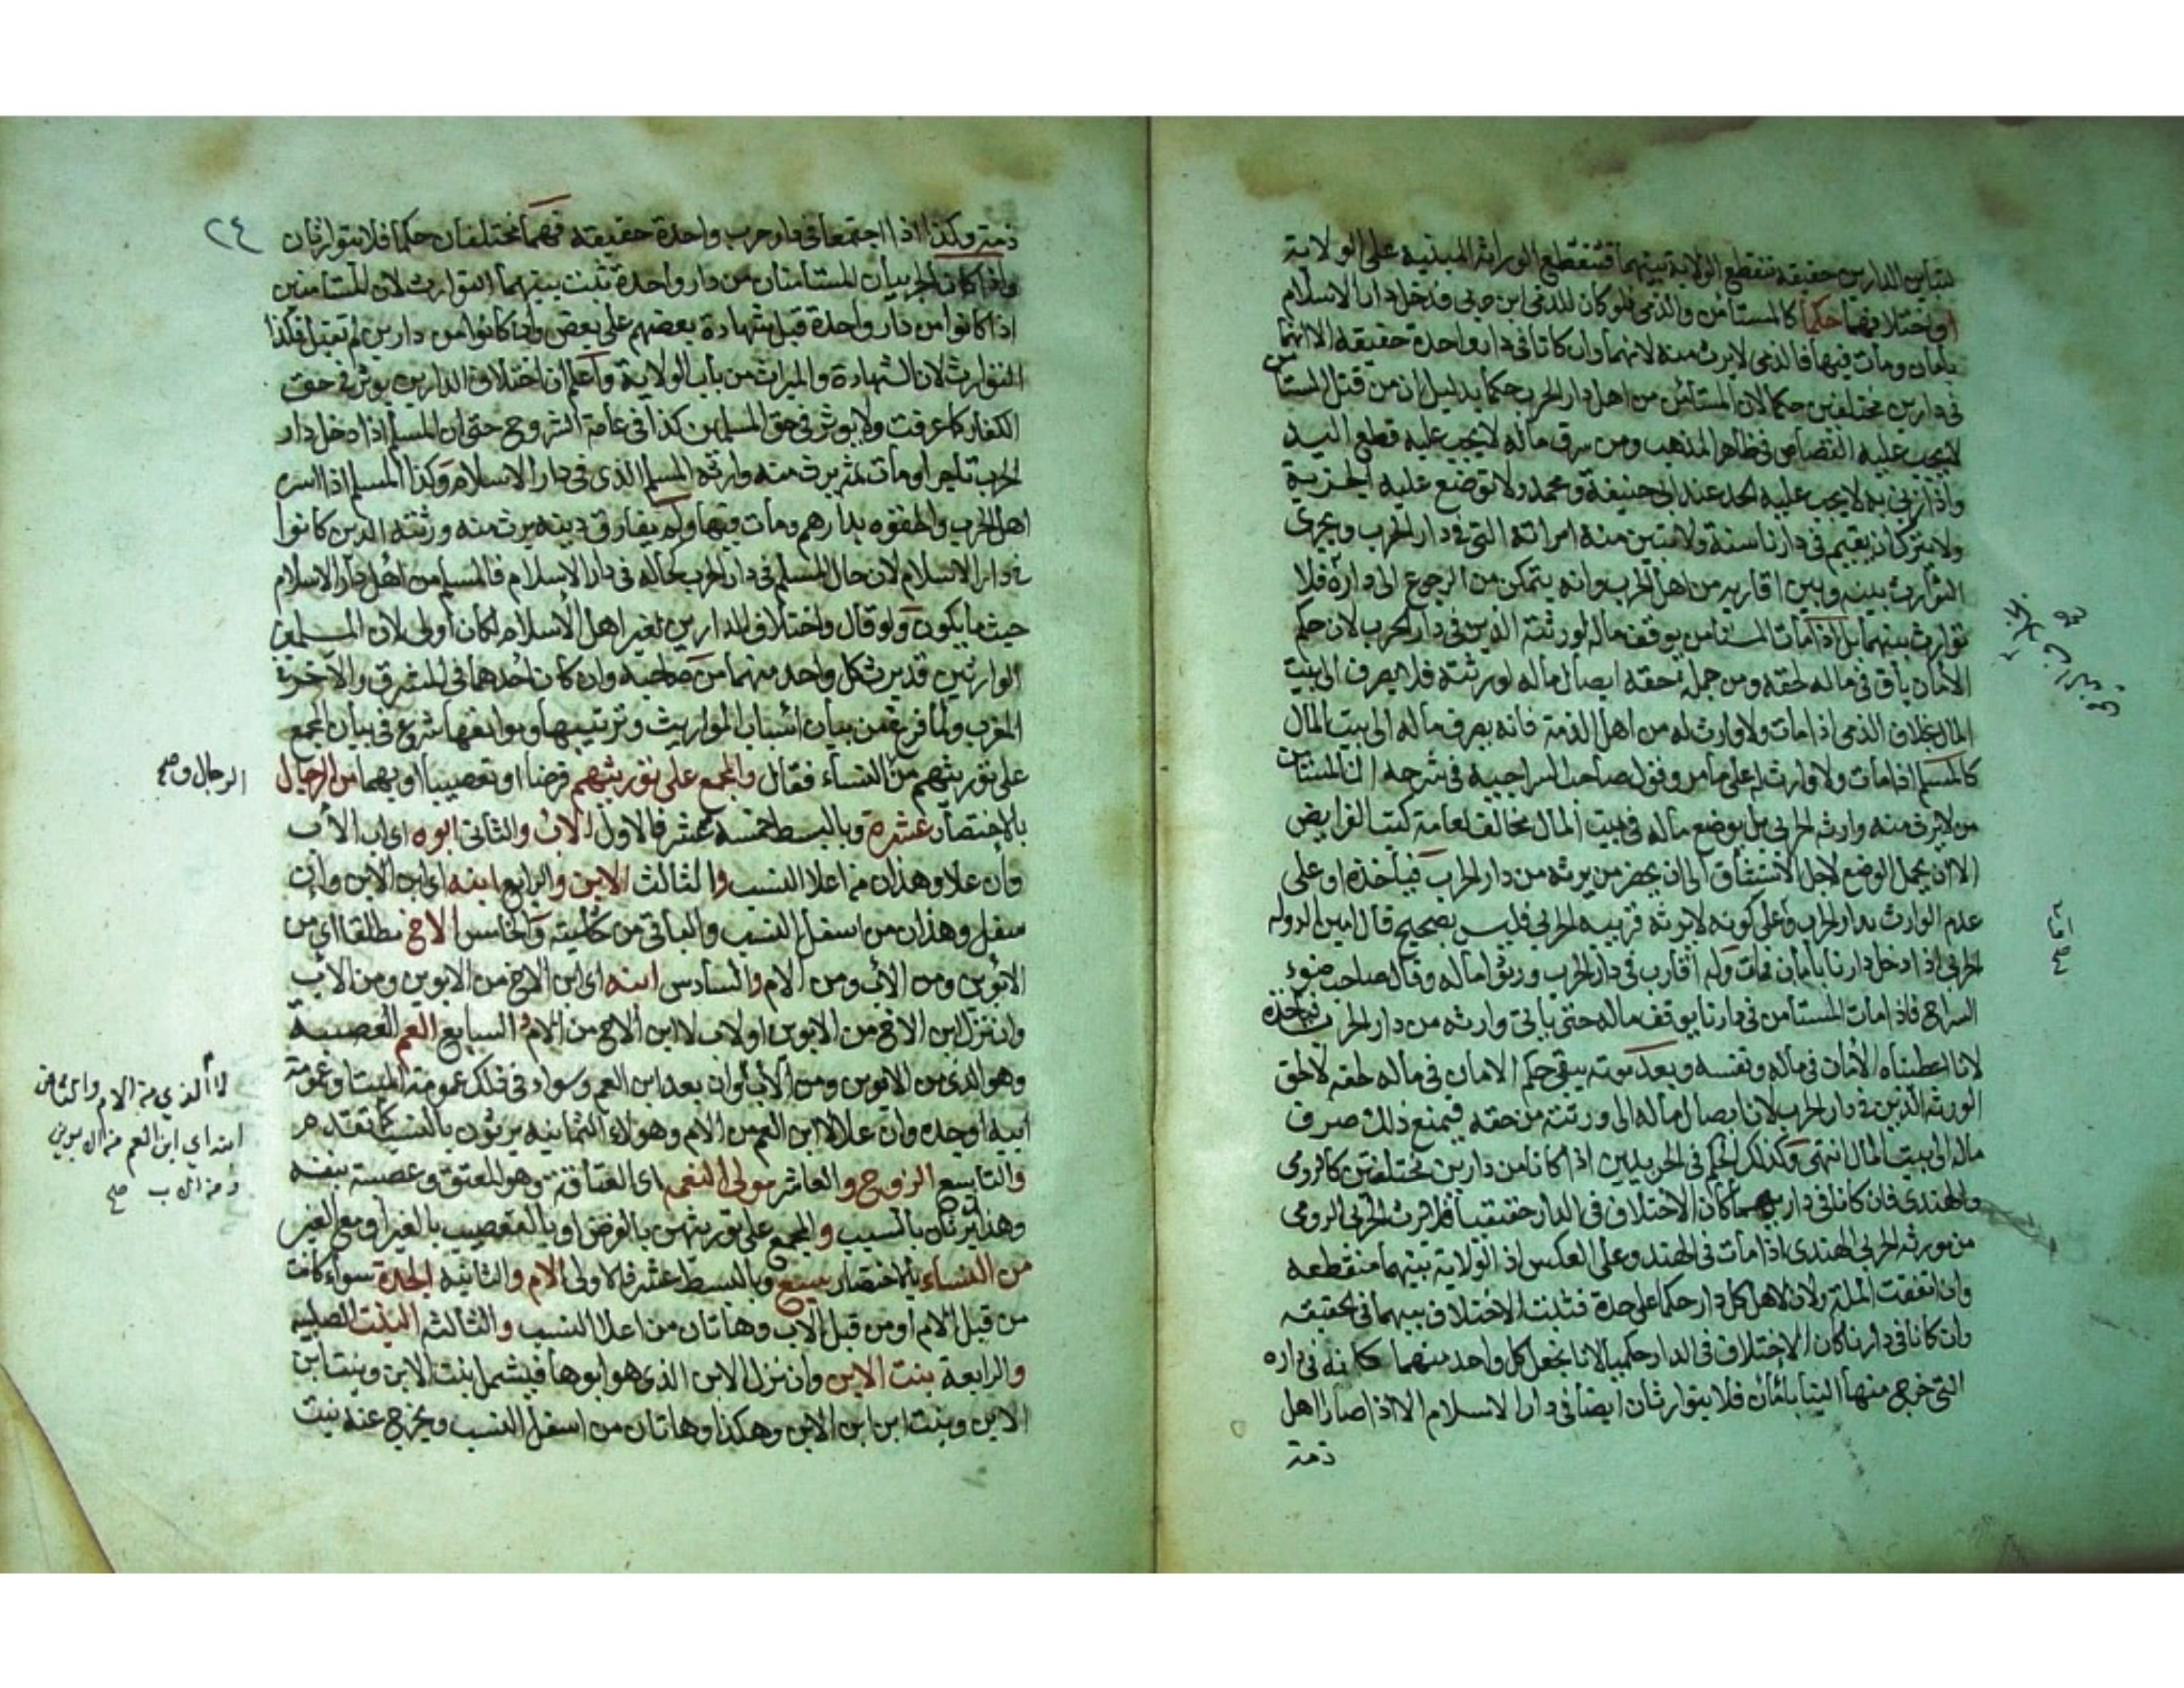 بتباين الدارين حقيقة تنقطع الولاية بينهما فتنقطع الوراثة المبنية على الولاية
او اختلافهما حكما كالمستأمن والذمي فلو كان للذمي ابن حربي فدخل دار الاسلام
بامان ومات فيها فالذمي لا يرث منه لانهما وان كانا في دار واحدة حقيقة الا انهما
في دارين مختلفين حكما لان المستأمن من اهل دار الحرب حكما بدليل ان من قتل المستأمن
لا يجب عليه القصاص في ظاهر المذهب ومن سرق ماله لا يجب عليه قطع اليد
واذا زنى به لا يجب عليه الحد عند ابي حنيفة ومحمد ولا توضع عليه الجزية
ولا يترك ان يقيم في دارنا سنة ولا تبين منه امراته التي في دار الحرب ويجرى
التوارث بينه وبين اقاربه من اهل الحرب وانه يتمكن من الرجوع الى داره فلا
توارث بينهما بل اذا مات المستامن يوقف ماله لورثته الذين في دار الحرب لان حكم
الامان باق في ماله لحقه ومن جملة حقه ايصال ماله لورثته فلا يصرف الى بيت
المال بخلاف الذمى اذا مات ولا وارث له من اهل الذمة فانه يصرف ماله الى بيت المال
كالمسلم اذا مات ولا وارث له على ما مر وقول صاحب السراجية في شرحه ان المستامن
من لا يرث منه وارثه الحربي بل يوضع ماله في بيت المال مخالف لعامة كتب الفرايض
الا ان يحمل الوضع لاجل الاستيفاق الى ان يحضر من يرثه من دار الحرب فياخذه او على
عدم الوارث بدار الحرب وعلى كونه لا يرثه قريبه الحربي فليس بصحيح قال امين الدولة
الحربي اذا دخل دارنا بامان فمات وله اقارب في دار الحرب ورثوا ماله وقال صاحب ضوء
السراج فاذا مات المستأمن في دارنا يوقف ماله حتى ياتى وارثه من دار الحرب فياخذه
لانا اعطيناه الامان في ماله ونفسه وبعد موته يبقى حكم الامان في ماله لحقه لا لحق
الورثة الذين في دار الحرب لان ايصال ماله الى ورثته من حقه فيمنع ذلك صرف
ماله الى بيت المال انتهى وكذلك الحكم في الحربيين اذا كانا من دارين مختلفتين كالرومى
والهندى فان كانا في داريهما كان الاختلاف في الدار حقيقيا فلا يرث الحربي الرومى
من مورثه الحربي الهندى اذا مات في الهند وعلى العكس اذ الولاية بينهما منقطعة
وان اتفقت الملة ولان لاهل كل دار حكما على حدة فتثبت الاختلاف بينهما في الحقيقة
وان كانا في دارنا كان الاختلاف في الدار حكميا لانا نجعل كل واحد منهما كانه في داره
التى خرج منها الينا بامان فلا يتوارثان ايضا في دار الاسلام الا اذا صارا اهل
ذمة
امانه
صح
٢٤
ذمة وكذا اذا اجتمعا في دار حرب واحدة حقيقة فهما مختلفان حكما فلا يتوارثان
واذا كان الحربيان المستأمنان من دار واحدة تثبت بينهما التوارث لان المستأمنين
اذا كانوا من دار واحدة قبل شهادة بعضهم على بعض وان كانوا من دارين لم تقبل فكذا
التوارث لان الشهادة والميراث من باب الولاية واعلم ان اختلاف الدارين يوثر في حق
الكفار كما عرفت ولا يوثر في حق المسلمين كذا في عامة الشروح حتى ان المسلم اذا دخل دار
الحرب تاجرا ومات ثمه يرث منه وارثه المسلم الذي في دار الاسلام وكذا المسلم اذا اسره
اهل الحرب والحقوه بدارهم ومات فيها ولم يفارق دينه يرث منه ورثته الذين كانوا
في دار الاسلام لان حال المسلم في دار الحرب كحاله في دار الاسلام فالمسلم من اهل دار الاسلام
حيث ما يكون ولو قال واختلاف الدارين لغير اهل الاسلام لكان اولى لان المسلمين
الوارثين قد يرث كل واحد منهما من صاحبه وان كان احدهما في المشرق والآخر في
المغرب ولما فرغ من بيان اسباب المواريث وترتيبها وموانعها شرع في بيان المجمع
على توريثهم من النساء فقال والمجمع على توريثهم فرضا او تعصيبا او بهما من الرجال
الرجال و صح
بالاختصار عشرة وبالبسط خمسة عشر فالاول الاب والثاني ابوه اى اب الاب
وان علا وهذان من اعلا النسب والثالث الابن والرابع ابنه اى ابن الابن وان
سفل وهذان من اسفل النسب والباقي من حاشيته والخامس الاخ مطلقا اى من
الابوين ومن الاب ومن الام والسادس ابنه اى ابن الاخ من الابوين ومن الاب
وان نزل ابن الاخ من الابوين او لاب لا ابن الاخ من الام السابع العم العصبية
وهو الذى من الابوين ومن الاب وان بعد ابن العم وسواء في ذلك عمومة الميت وعمومة
ابيه او جده وان علا لا ابن العم من الام وهولاء الثمانية يرثون بالنسب كما تقدم
لا الذي من الام والثامن
ابنه اي ابن العم من الابوين
ومن الاب صح
والتاسع الزوج والعاشر مولى النعمى اى العتاقة وهو المعتق وعصبته بنفسه
وهذا يرثان بالسبب والمجمع على توريثهن بالفرض او بالتعصيب بالغير او مع الغير
من النساء بالاختصار سبع وبالبسط عشر فالاولى الام والثانية الجدة سواء كانت
من قبل الام او من قبل الاب وهاتان من اعلا النسب والثالثة البنت الصلبية
والرابعة بنت الابن وان نزل الابن الذى هو ابوها فيشمل بنت الابن وبنت ابن
الابن وبنت ابن ابن الابن وهكذا وهاتان من اسفل النسب ويخرج عنه بنت